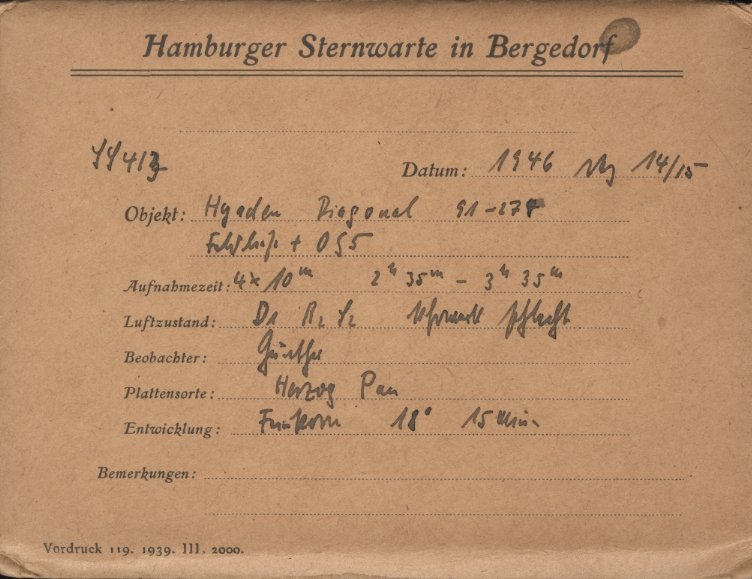 Hamburger Sternwarte in Bergedorf
Datum: 1946 14/15
Objekt: Hyaden Diagonal 91-278
+ OG5
Aufnahmezeit: 4x 10m 2h 35m - 3h 35m
Luftzustand: D1 R2 S2 schlecht
Beobachter: Günther
Plattensorte: Herzog Pan
Entwicklung: Feinkorn 18° 15 Min.
Bemerkungen:
Vordruck 119. 1939. III. 2000.